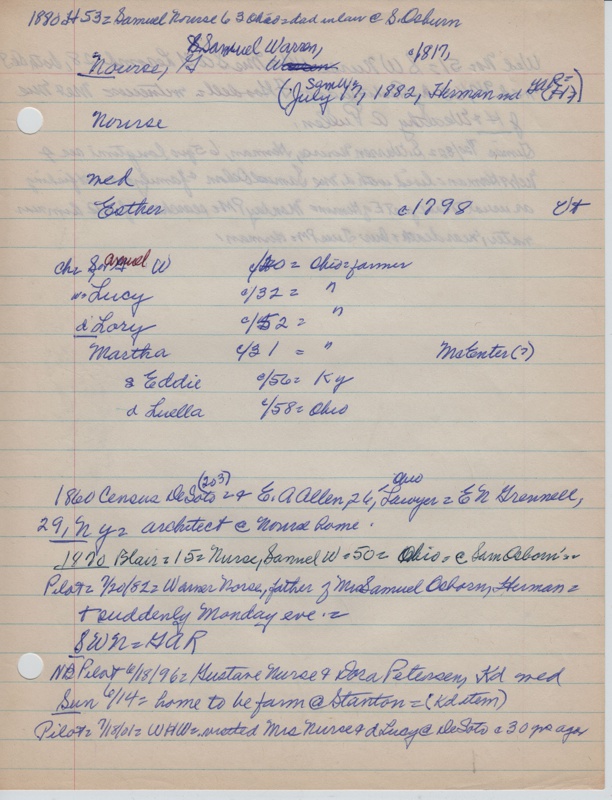 1880 H 53 = Samuel Nourse 63 Ohio = dad in law @ S. Osburn
& Samuel Warren, c/1817,
Nourse, Warren
(July 17, 1882, Herman nd GAR =
Nourse
med
Esther c1798 Vt
Ch = Samuel W c/20 = Ohio = farmer
w = Lucy c/32 = "
d Lory c/52 = "
Martha c/31 = " McEnter (?)
s Eddie c/56 = Ky
d Luella c/58 = Ohio
(203) Ohio
1860 Census DeSoto = & E. A Allen, 26, Lawyer = E N Grennell,
29, N Y = architect @ Nourse home.
1870 Blair = 15 = Nurse, Samuel W = 50 = Ohio = @ Sam Osborn's =
Pilot = 7/20/82 = Warner Norse, father of Mrs Samuel Osborn, Herman =
+ suddenly Monday eve. =
SWN = GAR
NB Pilot 6/18/96 = Gustave Nurse & Dora Petersen, Kd med
Sun 6/14 = home to be farm @ Stanton = (Kd item)
Pilot = 7/18/01 = WHW = visited Mrs Nurse & d Lucy @ DeSoto c 30 yrs ago